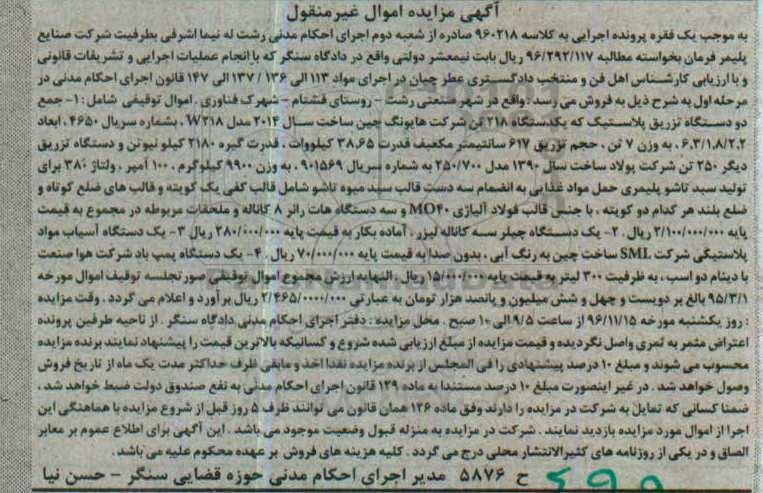 آگهی مزایده اموال غیرمنقول
به موجب یک فقره پرونده اجرایی به کلاسه ۹۶۰۲۱۸ صادره از شعبه دوم اجرای احکام مدنی رشت له نیما اشرفی بطرفیت شرکت صنایع
پلیمر فرمان بخواسته مطالبه ۹۶/۲۹۲/۱۱۷ ریال بابت نیمعشر دولتی واقع در دادگاه سنگر که با انجام عملیات اجرایی و تشریفات قانونی
و با ارزیابی کارشناس اهل فن و منتخب دادگستری عطر چمان در اجرای مواد ۱۱۳ الی ۱۳۶ / ۱۳۷ الی ۱۴۷ قانون اجرای احکام مدنی در
مرحله اول به شرح ذیل به فروش می رسد : واقع در شهر صنعتی رشت - روستای فشتام - شهرک فناوری . اموال توقیفی شامل : ۱- جمع
دو دستگاه تزریق پلاستیک که یکدستگاه ۲۱۸ تن شرکت هایونگ چین ساخت سال ۲۰۱۴ مدل W۲۱۸ . بشماره سریال ۴۶۵۰ . ابعاد
۶.۳/۱.۸/۲.۲ . به وزن ۷ تن . حجم تزریق ۶۱۷ سانتیمتر مکعبف قدرت ۳۸.۶۵ کیلووات . قدرت گیره ۲۱۸۰ کیلو نیوتن و دستگاه تزریق
دیگر ۲۵۰ تن شرکت پولاد ساخت سال ۱۳۹۰ مدل ۲۵۰/۷۰۰ به شماره سریال ۹۰۱۵۶۹ . به وزن ۹۹۰۰ کیلوگرم . ۱۰۰ آمپر . ولتاژ ۳۸۰ برای
تولید سبد تاشو پلیمری حمل مواد غذایی به انضمام سه دست قالب سبد میوه تاشو شامل قالب کفی یک کویته و قالب های ضلع کوتاه و
ضلع بلند هر کدام دو کویته . با جنس قالب فولاد آلیاژی MO۴۰ و سه دستگاه هات رانر ۸ کاناله و ملحقات مربوطه در مجموع به قیمت
پایه ۲/۱۰۰/۰۰۰/۰۰۰ ریال . ۲- یک دستگاه چیلر سه کاناله لیزر . آماده بکار به قیمت پایه ۲۸۰/۰۰۰/۰۰۰ ریال ۳- یک دستگاه آسیاب مواد
پلاستیکی شرکت SML ساخت چین به رنگ آبی . بدون صدا به قیمت پایه ۷۰/۰۰۰/۰۰۰ ریال . ۴- یک دستگاه پمپ باد شرکت هوا صنعت
با دینام دو اسب . به ظرفیت ۳۰۰ لیتر به قیمت پایه ۱۵/۰۰۰/۰۰۰ ریال . النهایه ارزش مجموع اموال توقیفی صورتجلسه توقیف اموال مورخه
۹۵/۳/۱ بالغ بر دویست و چهل و شش میلیون و پانصد هزار تومان به عبارتی ۲/۴۶۵/۰۰۰۰/۰۰۰ ریال برآورد و اعلام می گردد . وقت مزایده
: روز یکشنبه مورخه ۹۶/۱۱/۱۵ از ساعت ۹/۵ الی ۱۰ صبح . محل مزایده : دفتر اجرای احکام مدنی دادگاه سنگر . از ناحیه طرفین پرونده
اعتراض مثمر به ثمری واصل نگردیده و قیمت مزایده از مبلغ ارزیابی شده شروع و کسانیکه بالاترین قیمت را پیشنهاد نمایند برنده مزایده
محسوب می شوند و مبلغ ۱۰ درصد پیشنهادی را فی المجلس از برنده مزایده نقدا اخذ و مابقی ظرف حداکثر مدت یک ماه از تاریخ فروش
وصول خواهد شد . در غیر اینصورت مبلغ ۱۰ درصد مستندا به ماده ۱۲۹ قانون اجرای احکام مدنی به نفع صندوق دولت ضبط خواهد شد .
ضمنا کسانی که تمایل به شرکت در مزایده را دارند وفق ماده ۱۲۶ همان قانون می توانند ظرف ۵ روز قبل از شروع مزایده با هماهنگی این
اجرا از اموال مورد مزایده بازدید نمایند . شرکت در مزایده به منزله قبول وضعیت موجود می باشد . این آگهی برای اطلاع عموم بر معابر
الصاق و در یکی از روزنامه های کثیرالانتشار محلی درج می گردد . کلیه هزینه های فروش بر عهده محکوم علیه می باشد .
ح ۵۸۷۶ مدیر اجرای احکام مدنی حوزه قضایی سنگر - حسن نیا